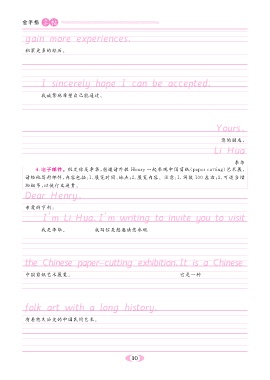 衡水体
gain more experiences.
积累更多的经历。
I sincerely hope I can be accepted.
我诚挚地希望自己能通过。
Yours,
你的朋友，
Li Hua
李华
4. 电子邮件。假定你是李华，想邀请外教 Henry 一起参观中国剪纸(paper-cutting)艺术展。
请给他写封邮件，内容包括：1. 展览时间、地点；2. 展览内容。注意：1. 词数 100 左右；2. 可适当增
加细节，以使行文连贯。
Dear Henry,
亲爱的亨利：
I'm Li Hua. I'm writing to invite you to visit
我是李华，我写信是想邀请您参观
the Chinese paper-cutting exhibition. It is a Chinese
中国剪纸艺术展览。 它是一种
folk art with a long history.
有着悠久历史的中国民间艺术。
30